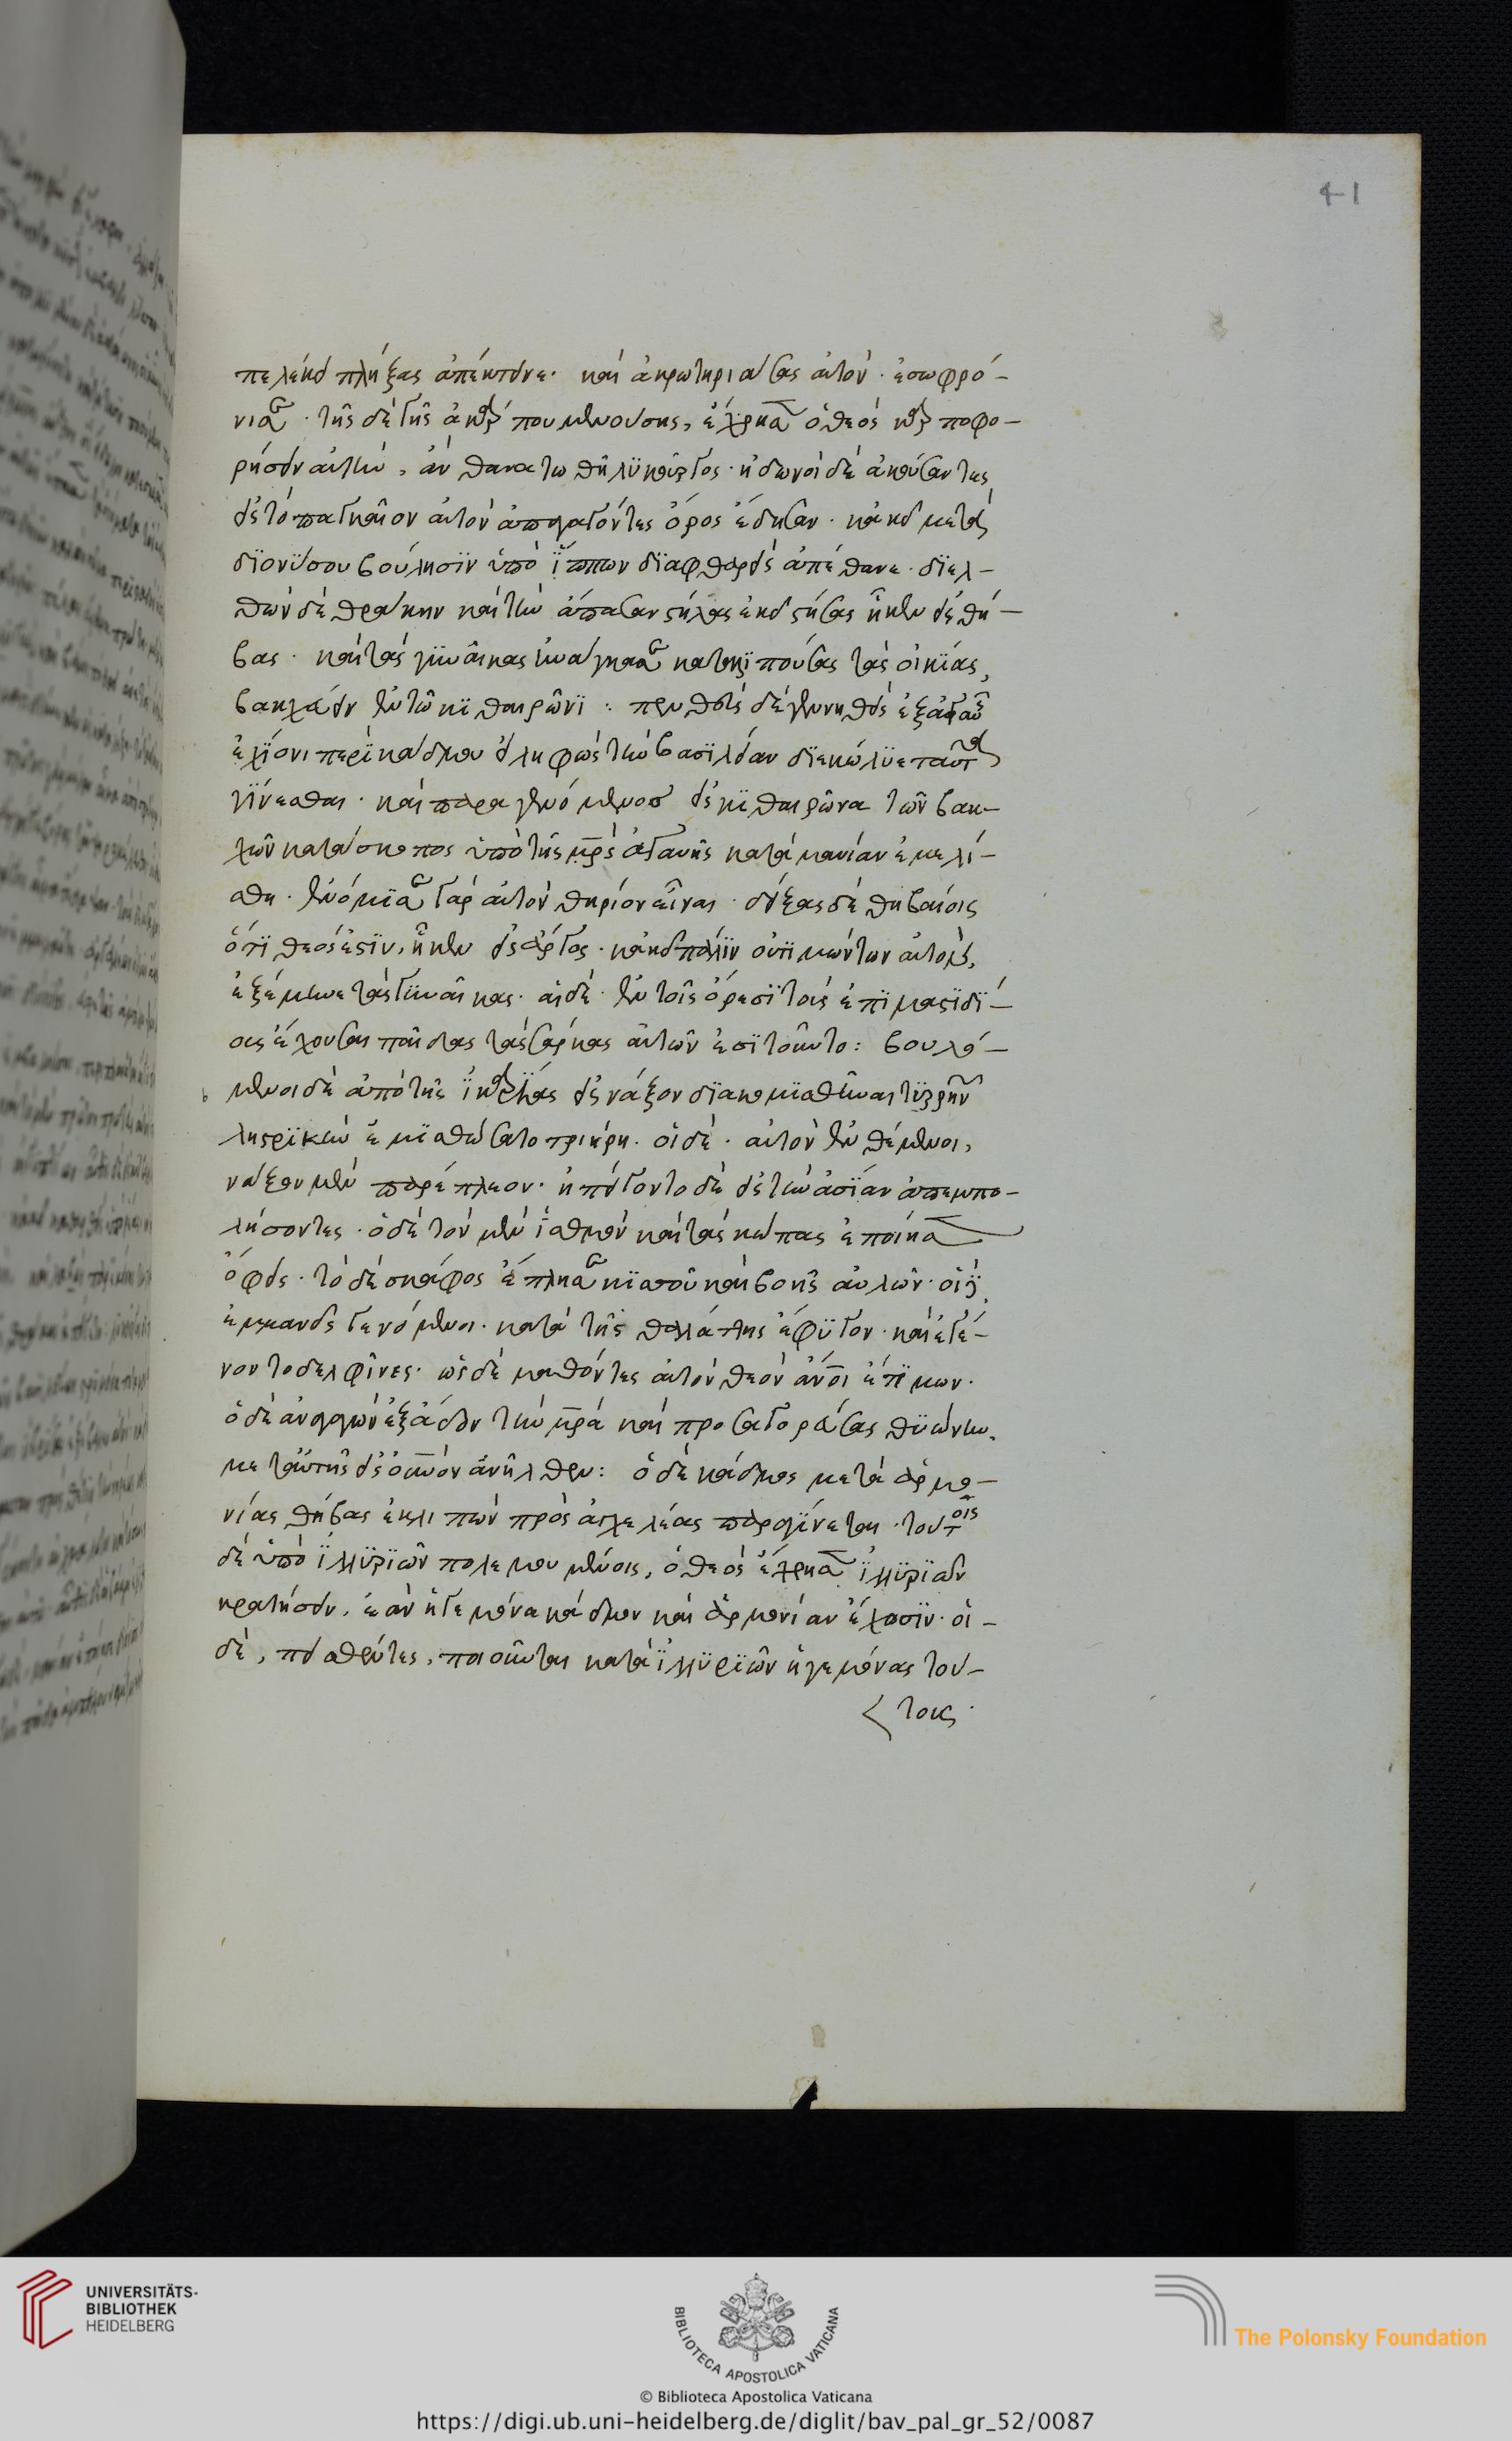 41
πελέκει πλήξας ἀπέκτεινε· καὶ ἀκρωτηριάσας αὐτὸν· ἐσωφρό-
νισε· τῆς δὲ γῆς ἀκάρπου μενούσης, ἔχρησεν ὁ θεὸς καρποφο-
ρήσειν αὐτὴν, ἂν θανατωθῆ λυκοῦργος· ἠδωνοὶ δὲ ἀκούσαντες
εἰς τὸ παγκαῖον αὐτὸν ἀπαγαγόντες ὄρος ἔδησαν· κἀκεῖ κατὰ
διονύσου βούλησιν ὑπὸ ἵππων διαφθαρεὶς ἀπέθανε· διελ-
θὼν δὲ θράκην καὶ τὴν ἅπασαν στήλας ἐκεῖ στήσας ἧκεν εἰς θή-
βας· καὶ τὰς γυναῖκας ἠνάγκασε καταλιπούσας τὰς οἰκίας,
βακχεύειν ἐν τῶ κιθαιρῶνι: πενθεὺς δὲ γεννηθεὶς ἐξ ἀγαυῆς
ἐχίονι περὶ κάδμου εἰληφὼς τὴν βασιλείαν διεκώλυε ταῦτα
γίνεσθαι· καὶ παραγενόμενος εἰς κιθαιρῶνα τῶν βακ-
χῶν κατάσκοπος ὑπὸ τῆς μρς ἀγαυῆς κατὰ μανίαν ἐμελί-
σθη· ἐνόμισε γὰρ αὐτὸν θηρίον εἶναι· δείξας δὲ θηβαίοις
ὅτι θεός ἐστιν, ἧκεν εἰς ἄργος· κἀκεῖ πάλιν οὐ τιμώντων αὐτὸν,
ἐξέμηνε τὰς γυναῖκας· αἱ δὲ· ἐν τοῖς ὄρεσι τοὺς ἐπιμαστιδί-
ους ἔχουσαι παῖδας τὰς σάρκας αὐτῶν ἐσιτοῦντο: βουλό-
μενος δὲ ἀπὸ τῆς ἰκαρίας εἰς νάξον διακομισθῆναι τυρρηνῶν
ληστρικὴν ἐμισθώσατο τριήρη· οἱ δὲ· αὐτὸν ἐνθέμενοι,
νάξον μὲν παρέπλεον· ἠπείγοντο δὲ εἰς τὴν ἀσίαν ἀπεμπο-
λήσοντες· ὁ δὲ τὸν μὲν ἱσθμὸν καὶ τὰς κώπας ἐποίησεν
ὄφεις· τὸ δὲ σκάφος ἔπλησε κισσοῦ καὶ βοῆς αὐλῶν· οἱ δὲ
ἐμμανεῖς γενόμενοι· κατὰ τῆς θαλάττης ἔφυγον· καὶ ἐγέ-
νοντο δελφῖνες· ὡς δὲ μαθόντες αὐτὸν θεὸν ἄνοι ἐτίμων·
ὁ δὲ ἀναγαγὼν ἐξ ἅδου τὴν μρα καὶ προσαγορεύσας θυώνην,
μετ᾽ αὐτῆς εἰς οὐνὸν ἀνῆλθεν: ὁ δὲ κάδμος μετὰ ἁρμο-
νίας θήβας ἐκλιπὼν πρὸς ἀγχελέας παραγίνεται· τούτοις
δὲ ὑπὸ ἰλλυριῶν πολεμουμένοις, ὁ θεὸς ἔχρησεν ἰλλυριῶν
κρατήσειν, ἐὰν ἡγεμόνα κάδμον καὶ ἁρμονίαν ἔχωσιν· οἱ-
δὲ, πεισθέντες, ποιοῦνται κατὰ ἰλλυριῶν ἡγεμόνας τού-
τους·
UNIVERSITÄTS-
BIBLIOTHEK
HEIDELBERG
BIBLIOTECA APOSTOLICA VATICANA
© Biblioteca Apostolica Vaticana
The Polonsky Foundation
https://digi.ub.uni-heidelberg.de/diglit/bav_pal_gr_52/0087